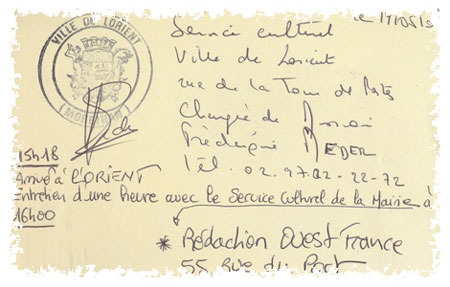 VILLE DE LORIENT
(MORBIHAN)
Service culturel
Ville de Lorient
rue de la Tour de
Chargée de
Frédérique MEDER
Tél. 02.97.02-22-72
15h18
Arrivé à L'ORIENT
Entretien d'une heure avec le Service Culturel de la Mairie à
16h00
* Rédaction Ouest France
55 Rue du Port